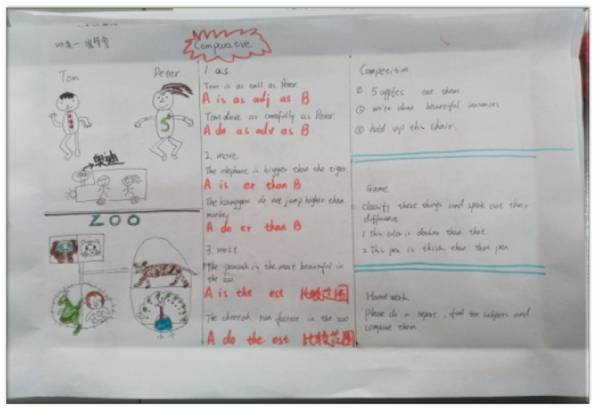 Comparative
Tom
Peter
5
奥迪
ZOO
1. as
Tom is as tall as Peter.
A is as adj as B
Tom drive as carefully as Peter.
A do as adv as B
2. more
The elephant is bigger than the tiger.
A is er than B
The kangaroo do not jump higher than
monkey
A do er than B
3. most
The peacock is the most beautiful in
the zoo.
A is the est 比较范围
The cheetah run fastest in the zoo
A do the est 比较范围
Competition
① 5 apples eat them
② write down beautiful sentences
③ hold up this chair.
Game
Classify these things and speak out their
difference
1 This color is darker than that.
2 This pen is thick than that pen
Homework
Please do a report, find ten subjects and
compare them